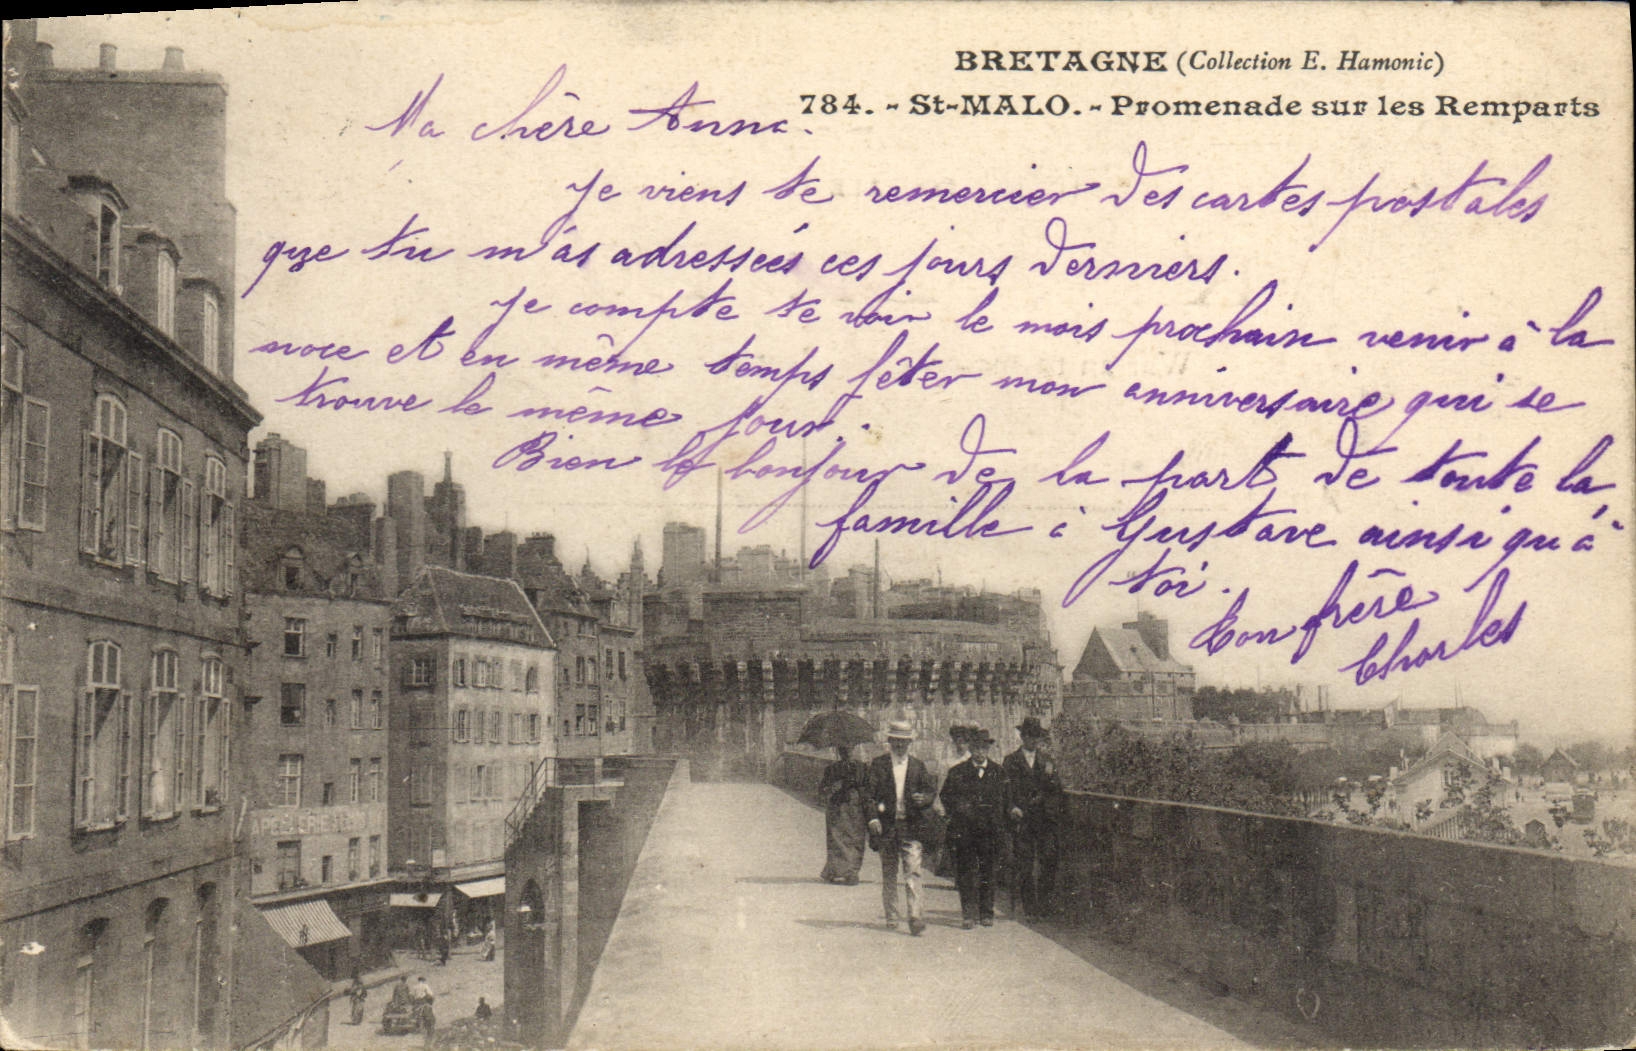 BRETAGNE (Collection E. Hamonic)
784. - St-MALO. - Promenade sur les Remparts
Ma chère Anna.
Je viens te remercier des cartes postales
que tu m'as adressées ces jours derniers.
Je compte te voir le mois prochain venir à la
noce et en même temps fêter mon anniversaire qui se
trouve le même jour.
Bien le bonjour de la part de toute la
famille à Gustave ainsi qu'à
toi.
Ton frère
Charles